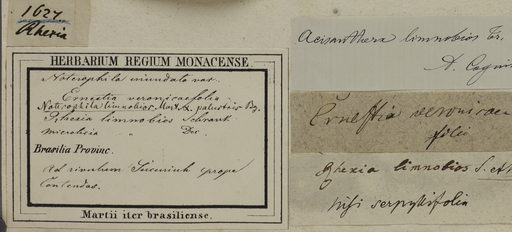 1627
Rhexia
HERBARIUM REGIUM MONACENSE.
Noterophila inundata var.
Ernestia veronicaefolia
Noterophila limnobios Mart. & palustris Bg.
Rhexia limnobios Schrank
microlicia " Dec
Brasilia Provinc.
Ad rivulum prope
Contendas.
Martii iter brasiliense.
Acisanthera limnobios Tr.
A. Cogniaux
Ernestia veronicae
folia
Rhexia limnobios S. et M
nisi serpyllifolia